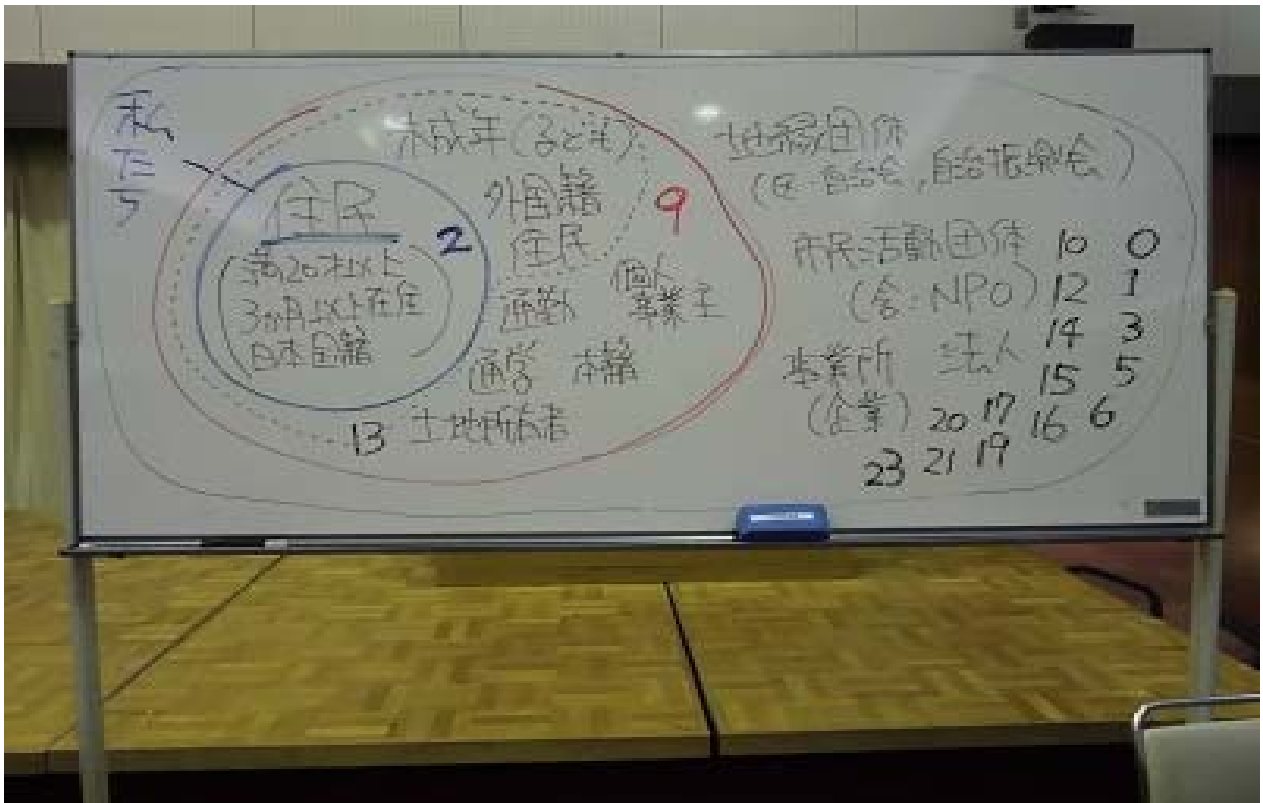 私たち
未成年(子ども)
住民
2
(満20才以上
3ヵ月以上在住
日本国籍)
外国籍
住民
9
通勤
個人
事業主
通学 本籍
13 土地所有者
地縁団体
(区・自治会,自治振興会)
市民活動団体
(含:NPO)
事業所 法人
(企業)
10 0
12 1
14 3
15 5
20 17 16 6
23 21 19